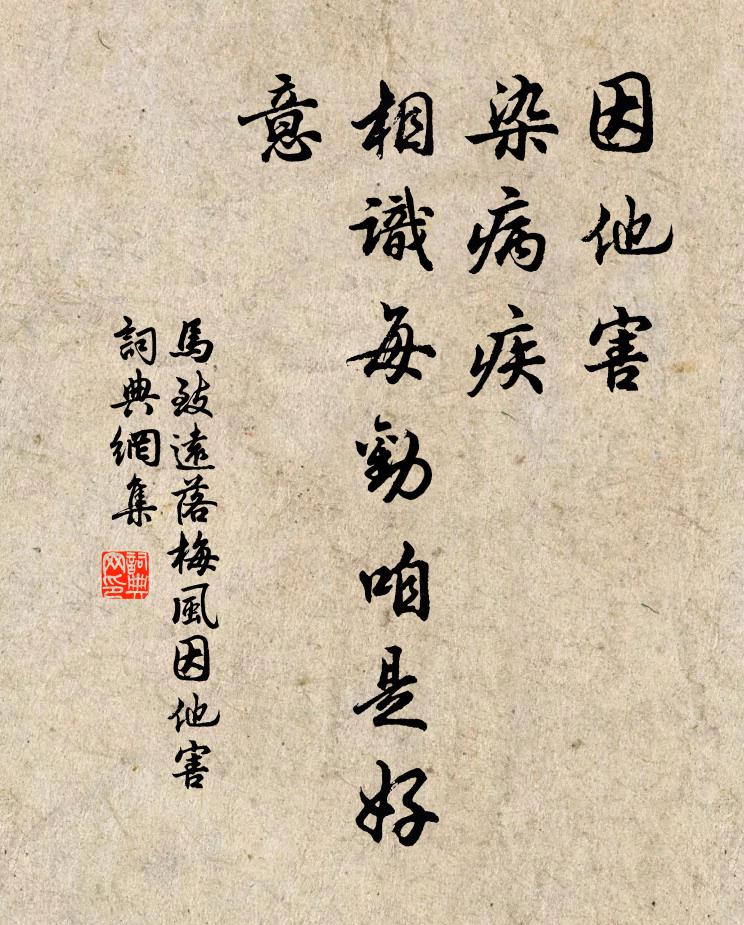 因他害
染病疾
相識每勸咱是好
意
馬致遠落梅風因他害
詞典網集
詞典网印